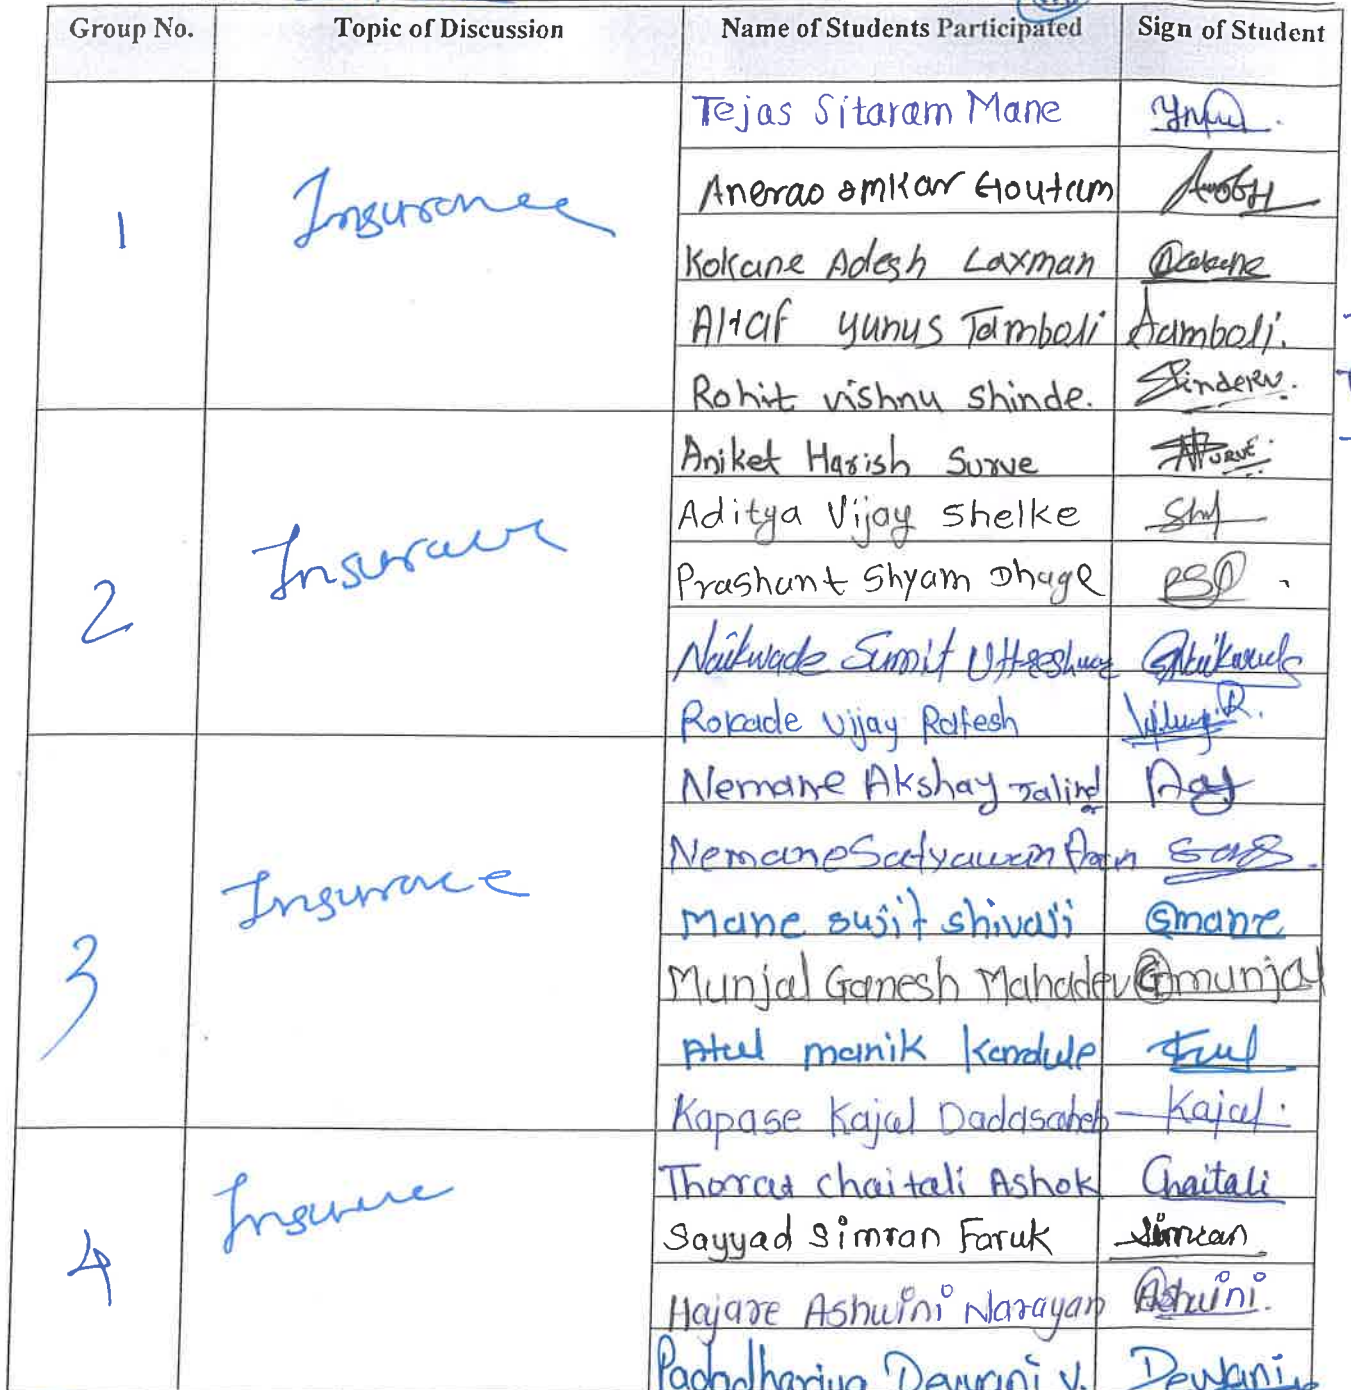 Group No. Topic of Discussion Name of Students Participated Sign of Student
1 Insurance
Tejas Sitaram Mane
Anerao Omkar Goutam
Kokane Adesh Laxman
Altaf Yunus Tamboli Aamboli.
Rohit vishnu Shinde. ShindeRV.
2 Insurance
Aniket Harish Surve Surve
Aditya Vijay Shelke
Prashant Shyam Dhage PSD
Naikwade Sumit Uttreshwar SNaikwade
Rokade Vijay Ratesh Vijay.R.
3 Insurace
Nemane Akshay Jalindar
Nemane Satyawan
Mane sujit shivaji Smane
Munjal Ganesh Mahadev Gmunjal
Atul manik Kandule Atul
Kapase Kajal Dadasaheb Kajal.
4 Insurance
Thorat chaitali Ashok Chaitali
Sayyad Simran Faruk Simran
Hajare Ashwini Narayan Ashwini.
Devyani V. Dewyani